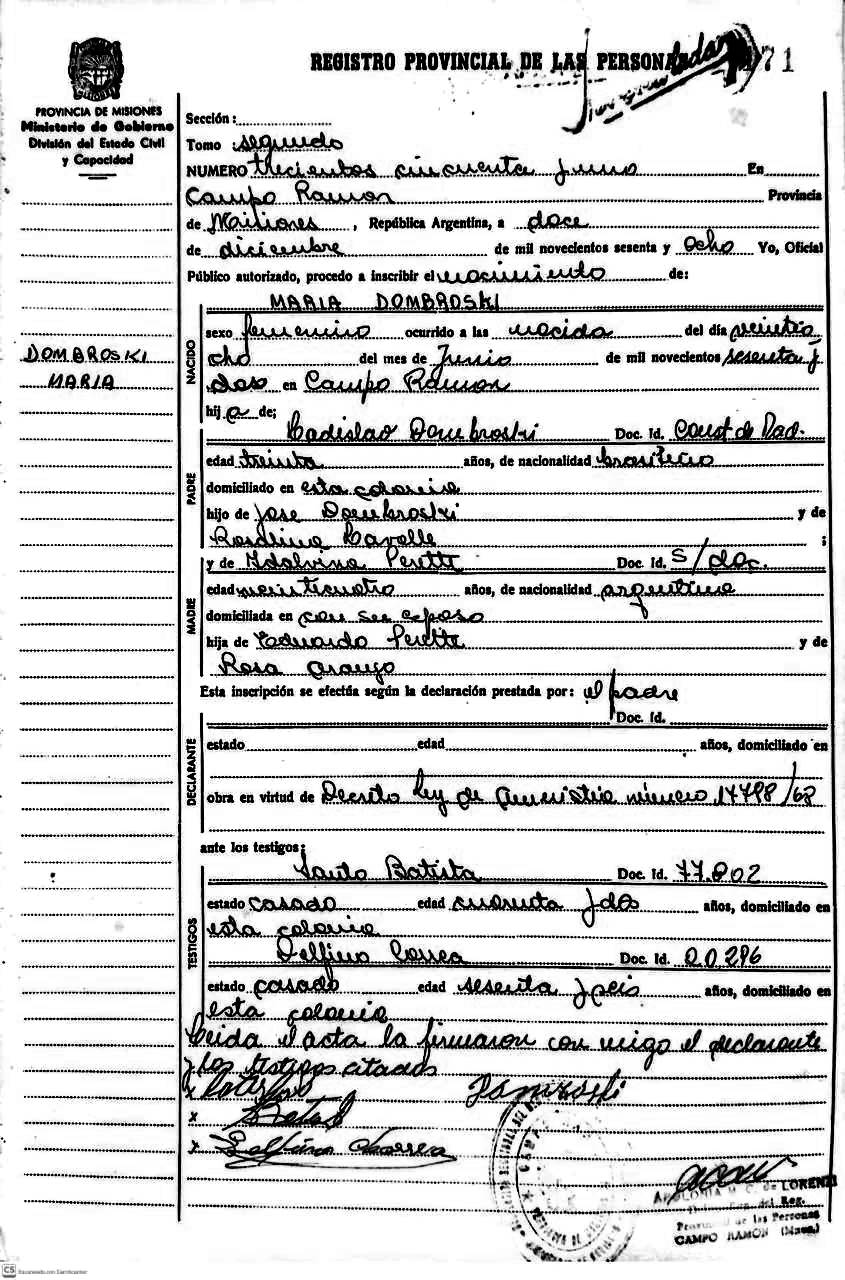 REGISTRO PROVINCIAL DE LAS PERSONAS
71
PROVINCIA DE MISIONES
Ministerio de Gobierno
División del Estado Civil
y Capacidad
Sección:
Tomo segundo
NUMERO trecientos cincuenta y uno En
Campo Ramon Provincia
de Misiones, República Argentina, a doce
de diciembre de mil novecientos sesenta y ocho Yo, Oficial
Público autorizado, procedo a inscribir el nacimiento de:
MARIA DOMBROSKI
DOMBROSKI
MARIA
NACIDO
sexo femenino ocurrido a las nacida del día veintio
cho del mes de Junio de mil novecientos sesenta y
dos en Campo Ramon
hija de;
PADRE
Ladislao Dombroski Doc. Id. Const de Nac.
edad treinta años, de nacionalidad brasilero
domiciliado en esta colonia
hijo de Jose Dombroski y de
Rosalina Cavalle ;
MADRE
y de Idalvina Perette Doc. Id. S/doc.
edad veinticuatro años, de nacionalidad argentina
domiciliada en con su esposo
hija de Eduardo Perette y de
Rosa Araujo
Esta inscripción se efectúa según la declaración prestada por: el padre
DECLARANTE
Doc. Id.
estado edad años, domiciliado en
obra en virtud de Decreto ley de amnistia número 17798/68
ante los testigos:
TESTIGOS
Santo Batista Doc. Id. 77.802
estado casado edad cuarenta y dos años, domiciliado en
esta colonia
Delfino Correa Doc. Id. 20.296
estado casado edad sesenta y seis años, domiciliado en
esta colonia
Leida el acta la firmaron con migo el declarante
y los testigos citados
x
x
x Delfino Correa
de LORENZ
del Reg.
Provincial de las Personas
CAMPO RAMÓN (Mnes.)
CS Escaneado con CamScanner